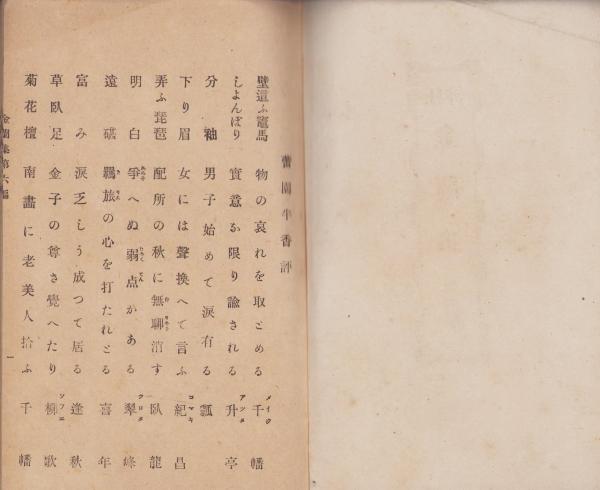 蕾園牛香評
壁這ふ竈馬 物の哀れを取とめる メイク 千幡
しよんぼり 實意が限り諭される アツタ 升亭
分袖 男子始めて涙有る 瓢
下り眉 女には聲換へて言ふ コマキ 紀昌
弄ふ琵琶 配所の秋に無聊消す 臥龍
明白 爭へぬ弱点がある クロタ 翠峰
遠砧 羈旅の心を打たれとる 喜年
富み 涙乏しう成つて居る 逢秋
草臥足 金子の尊さ覺へたり ソフエ 柳歌
菊花壇 南畵に老美人拾ふ 千幡
金蘭集第六編
一